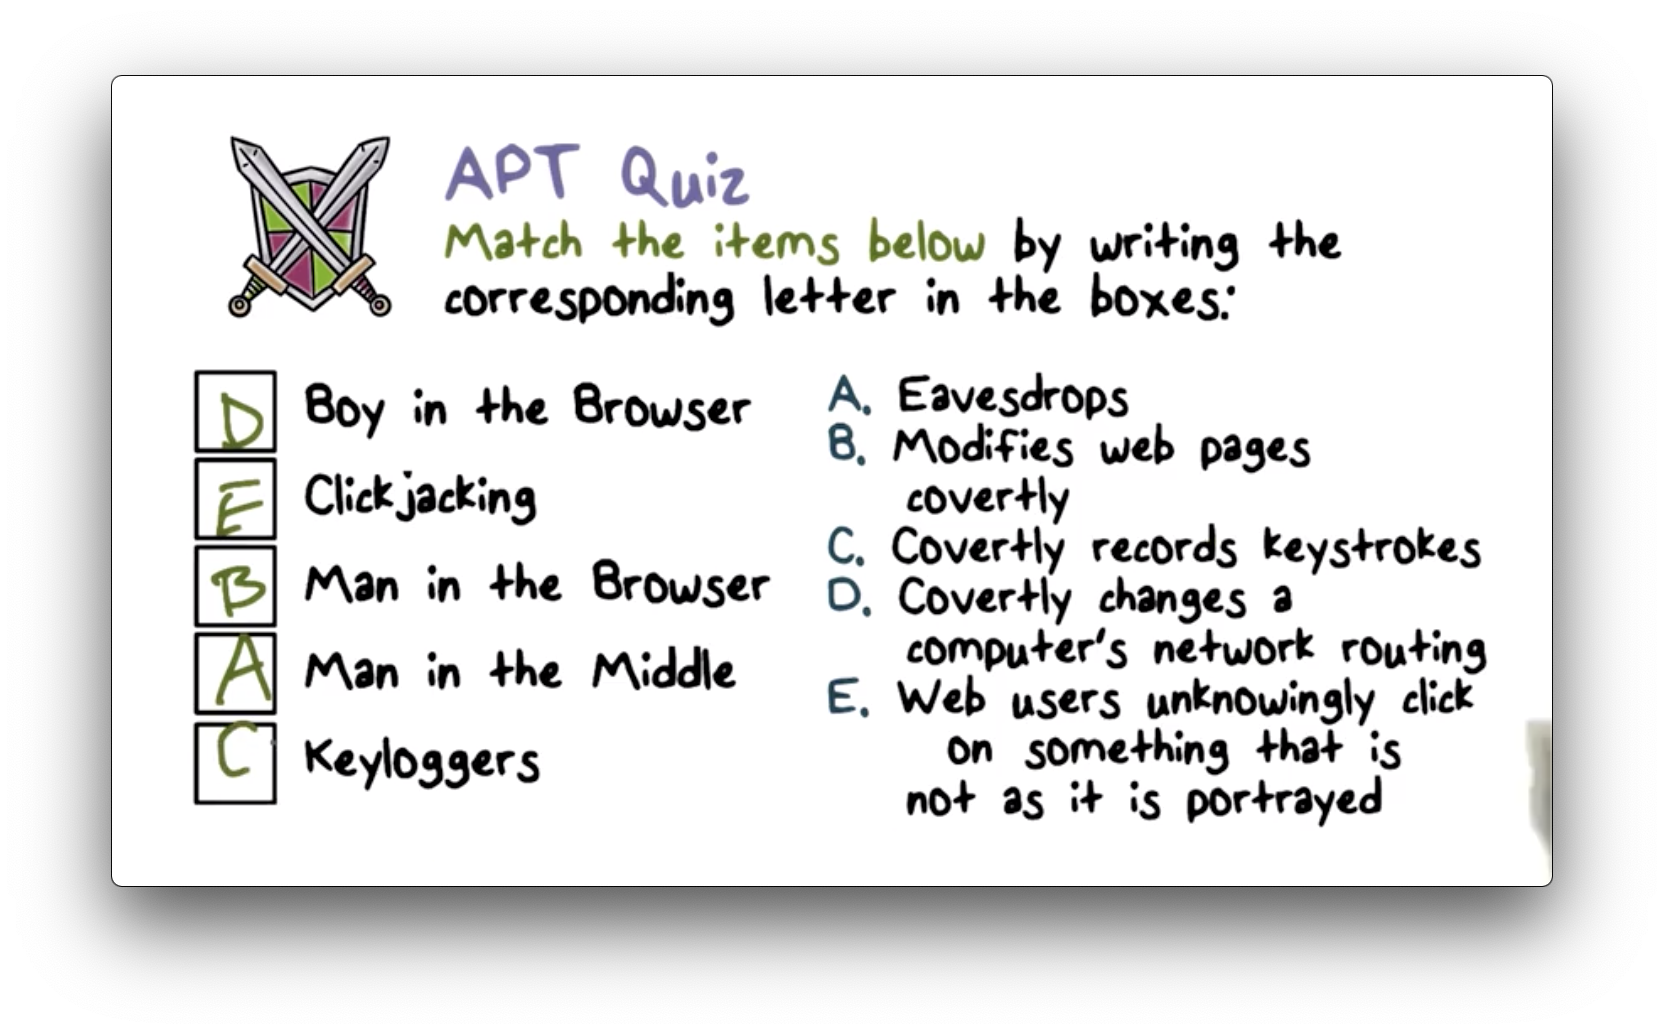 APT Quiz
Match the items below by writing the
corresponding letter in the boxes:
D Boy in the Browser
E Clickjacking
B Man in the Browser
A Man in the Middle
C Keyloggers
A. Eavesdrops
B. Modifies web pages
covertly
C. Covertly records keystrokes
D. Covertly changes a
computer's network routing
E. Web users unknowingly click
on something that is
not as it is portrayed